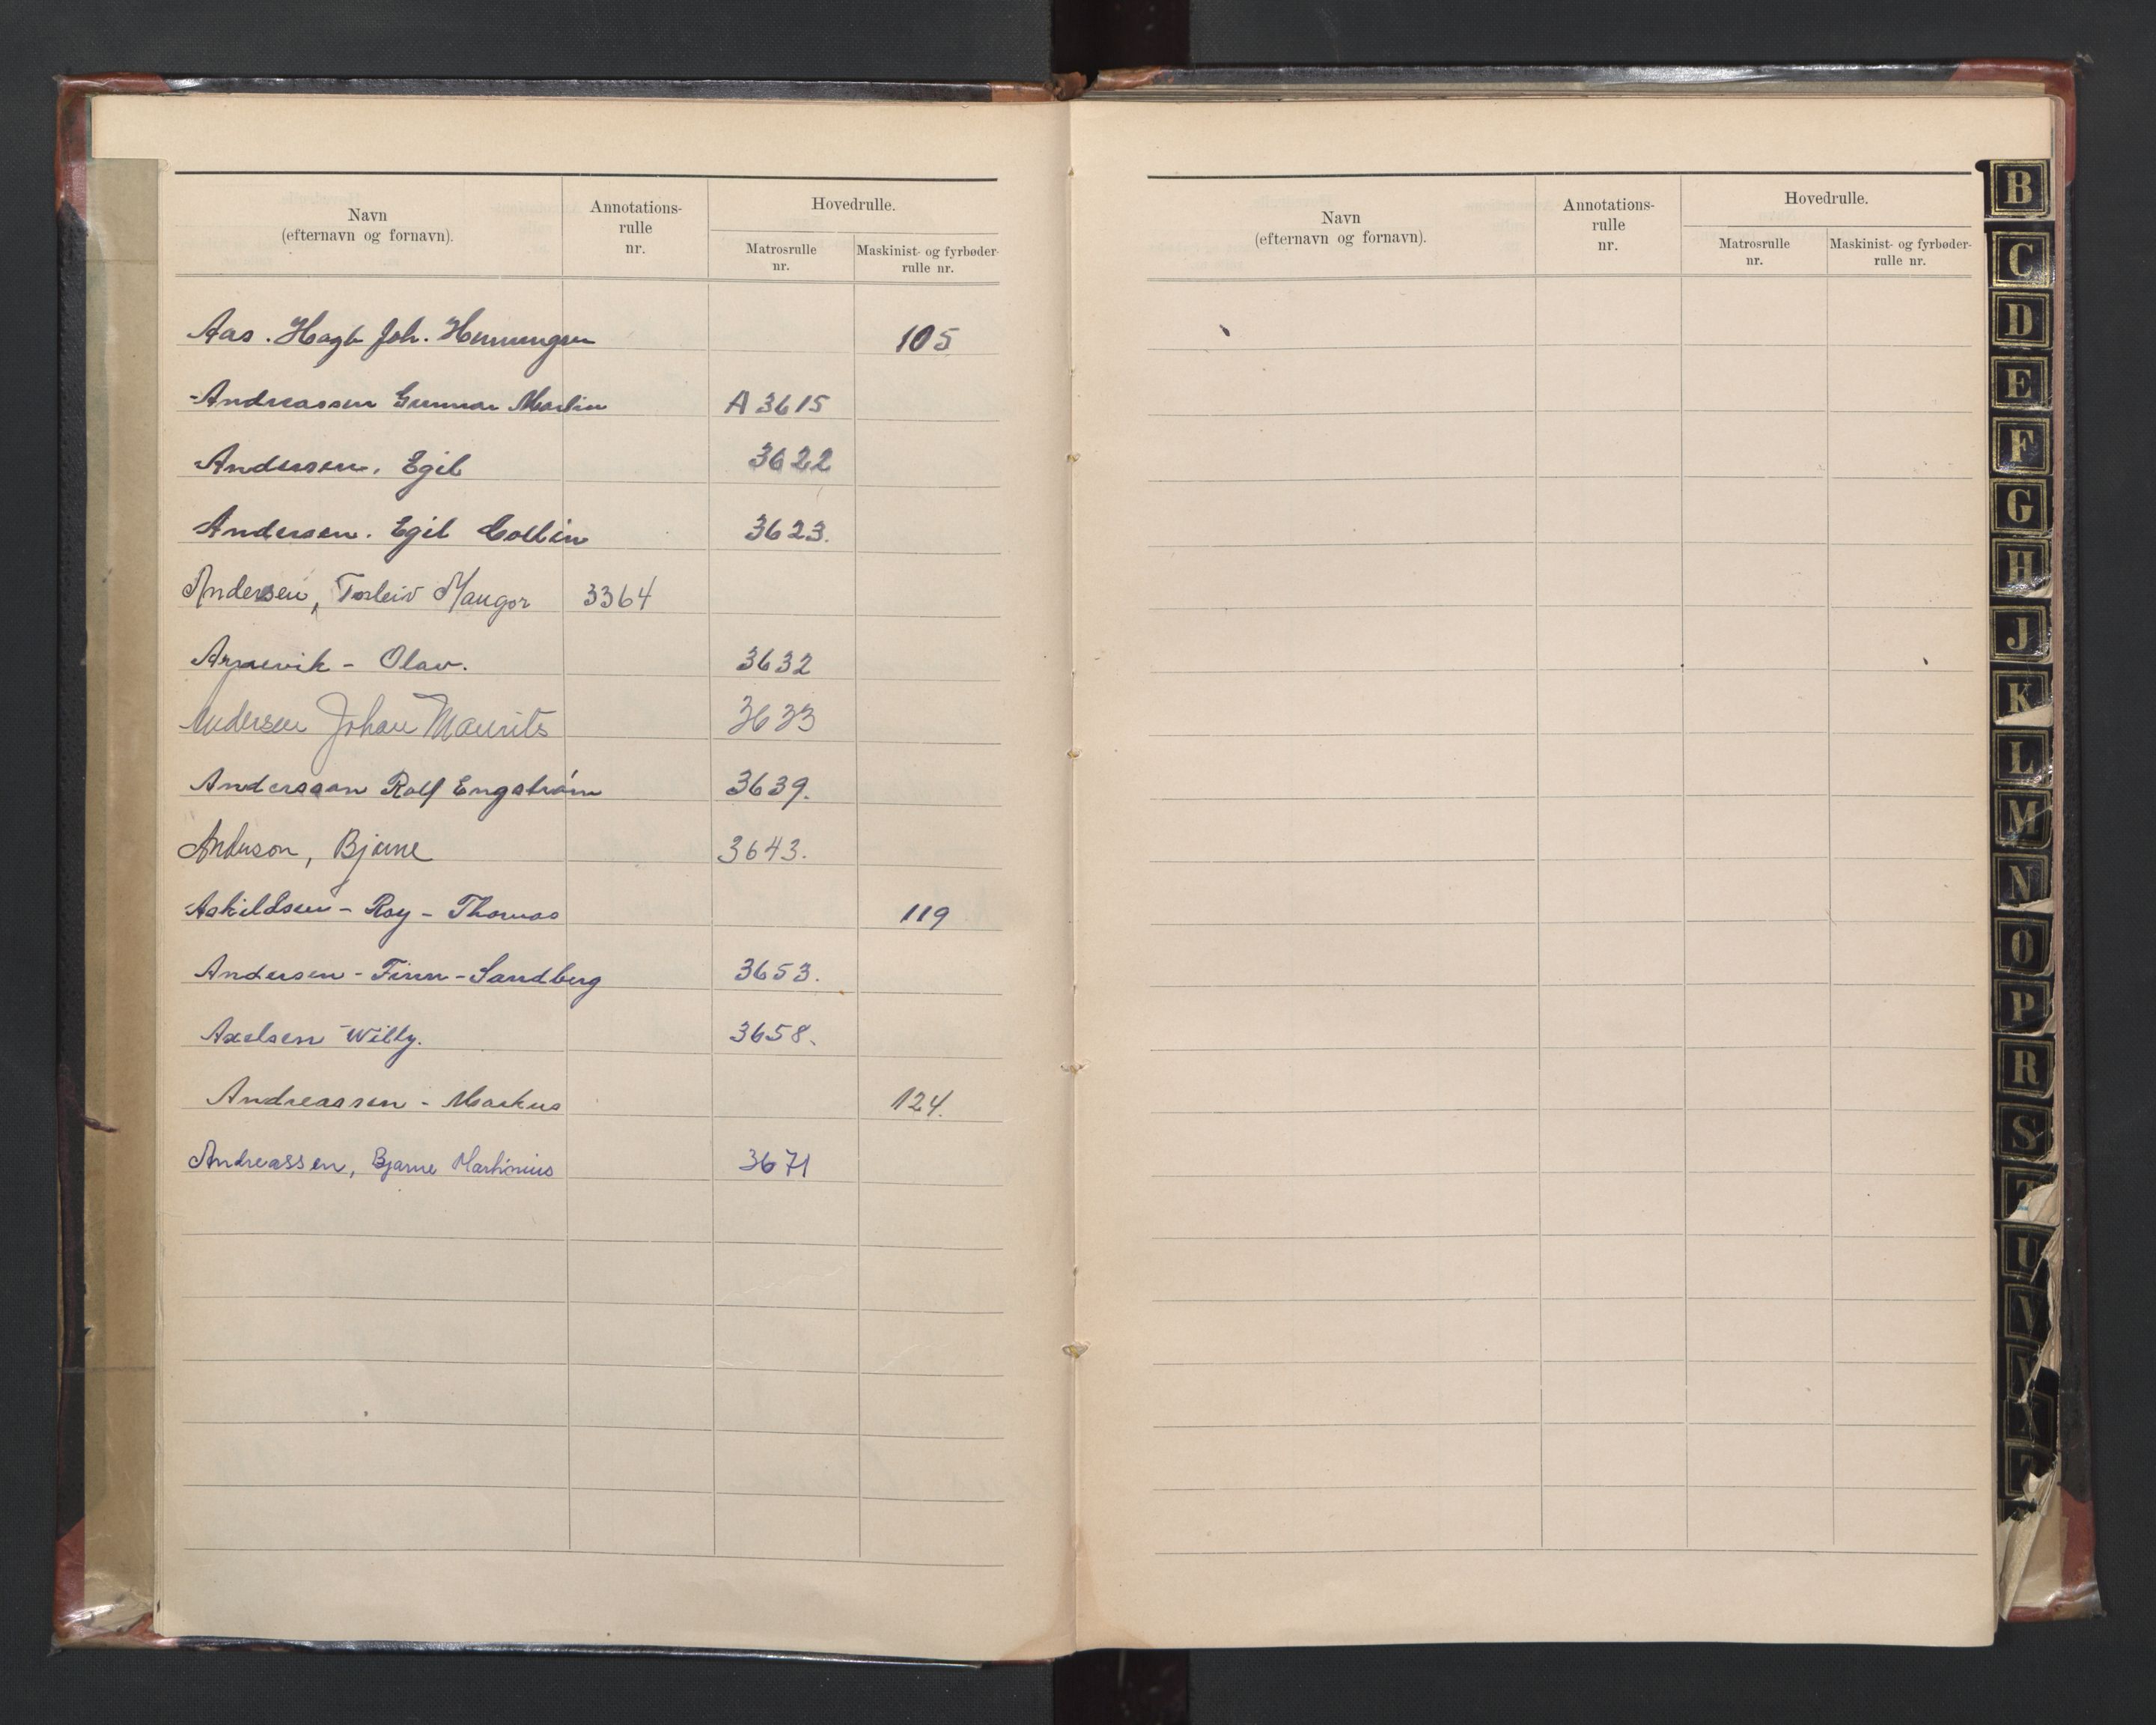 Navn
(efternavn og fornavn).
Annotations-
rulle
nr.
Hovedrulle.
Matrosrulle
nr.
Maskinist- og fyrbøder-
rulle nr.
Aas. Hagb Joh. Henningsen 105
Andreassen Gunnar Martin A 3615
Andersen. Egil 3622
Andersen. Egil Collin 3623.
Andersen, Torleiv Maugor 3364
Arnevik - Olav. 3632
Andersen Johan Maurits 3633
Andersson Rolf Engström 3639.
Anderson, Bjarne 3643.
Askildsen - Roy - Thomas 119
Andersen - Finn - Sandberg 3653.
Axelsen Willy. 3658.
Andreassen - Markus 124.
Andreassen, Bjarne Martinius 3671
Navn
(efternavn og fornavn).
Annotations-
rulle
nr.
Hovedrulle.
Matrosrulle
nr.
Maskinist- og fyrbøder-
rulle nr.
B
C
D
E
F
G
H
J
K
L
M
N
O
P
R
S
T
U
V